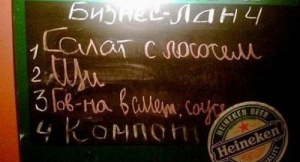 Бизнес-Ланч
1 Салат с лососем
2 Щи
3 Гов-на в смет. соусе
4 Компот
HEINEKEN BEER
Heineken